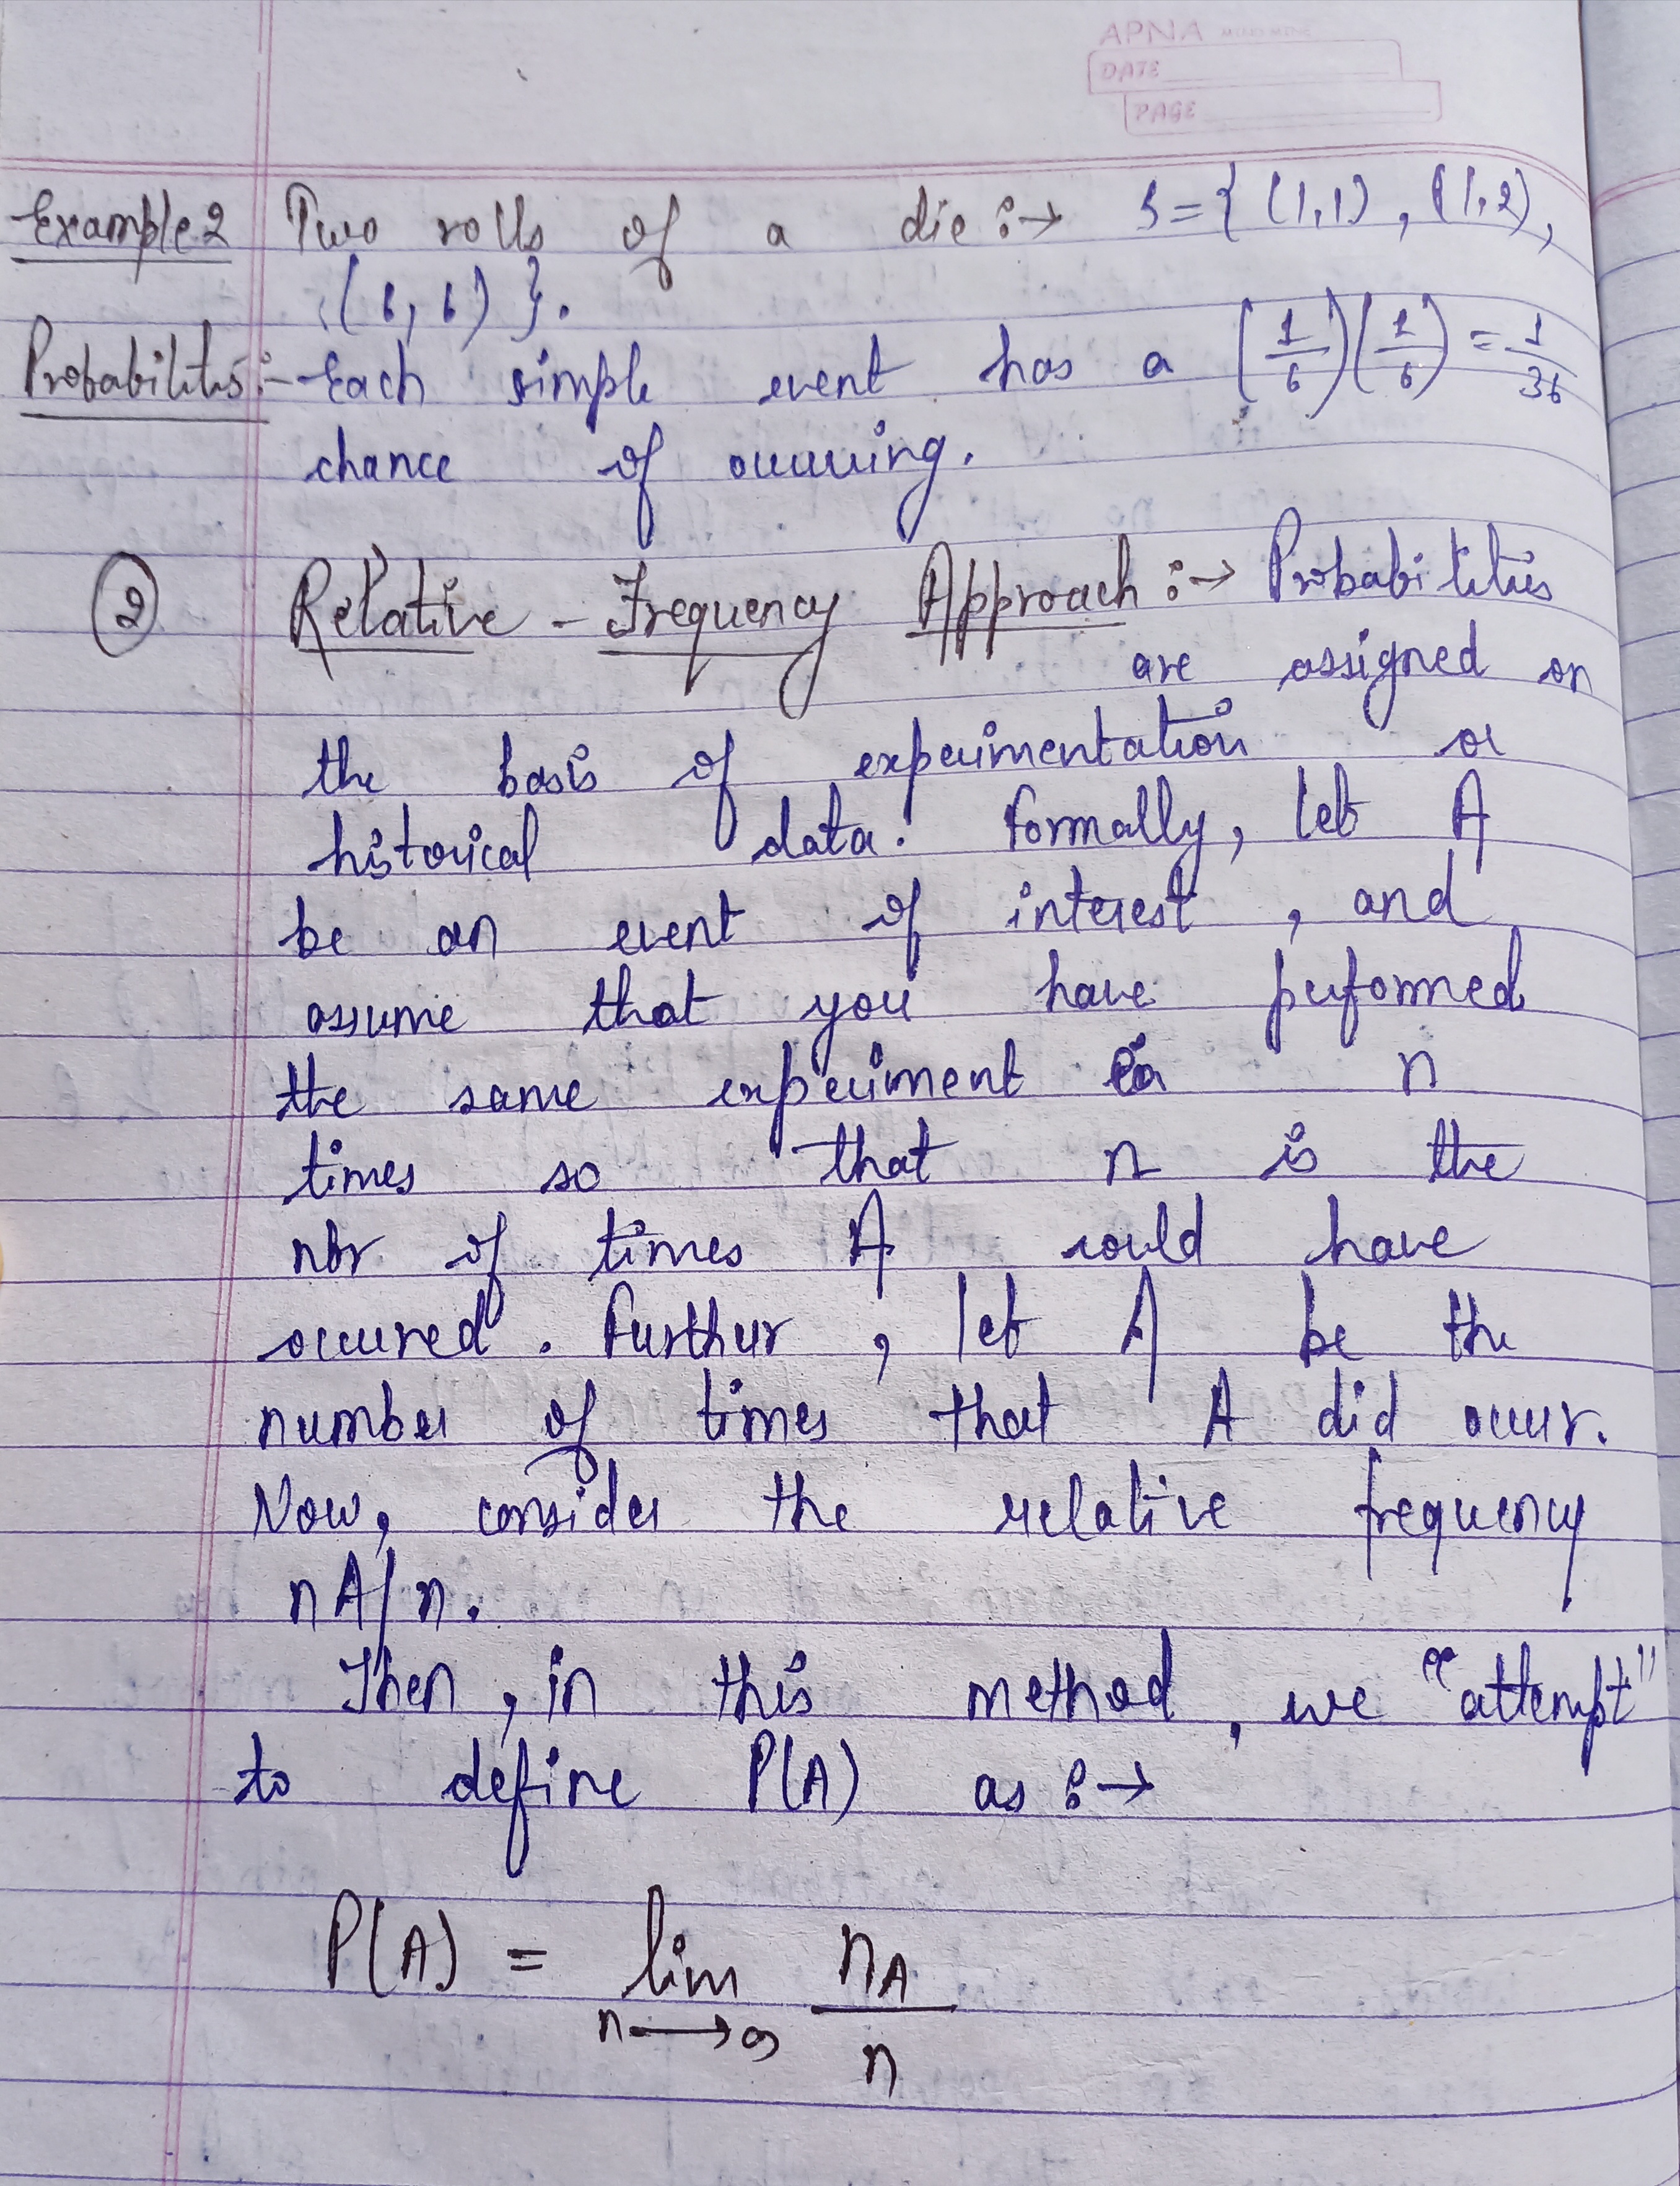 APNA
DATE
PAGE
Example.2 Two rolls of a die :→ S={ (1,1) , (1,2),
(6,6) }.
Probabilities:- Each simple event has a (1/6)(1/6) = 1/36
chance of occuring.
② Relative - Frequency Approach :→ Probabilities
are assigned on
the basis of experimentation or
historical data. Formally, let A
be an event of interest , and
assume that you have performed
the same experiment n
times so that n is the
nbr of times A could have
occured . Furthur , let A be the
number of times that A did occur.
Now, consider the relative frequency
nA/n.
Then , in this method , we "attempt"
to define P(A) as :→
P(A) = lim n→∞ nA/n